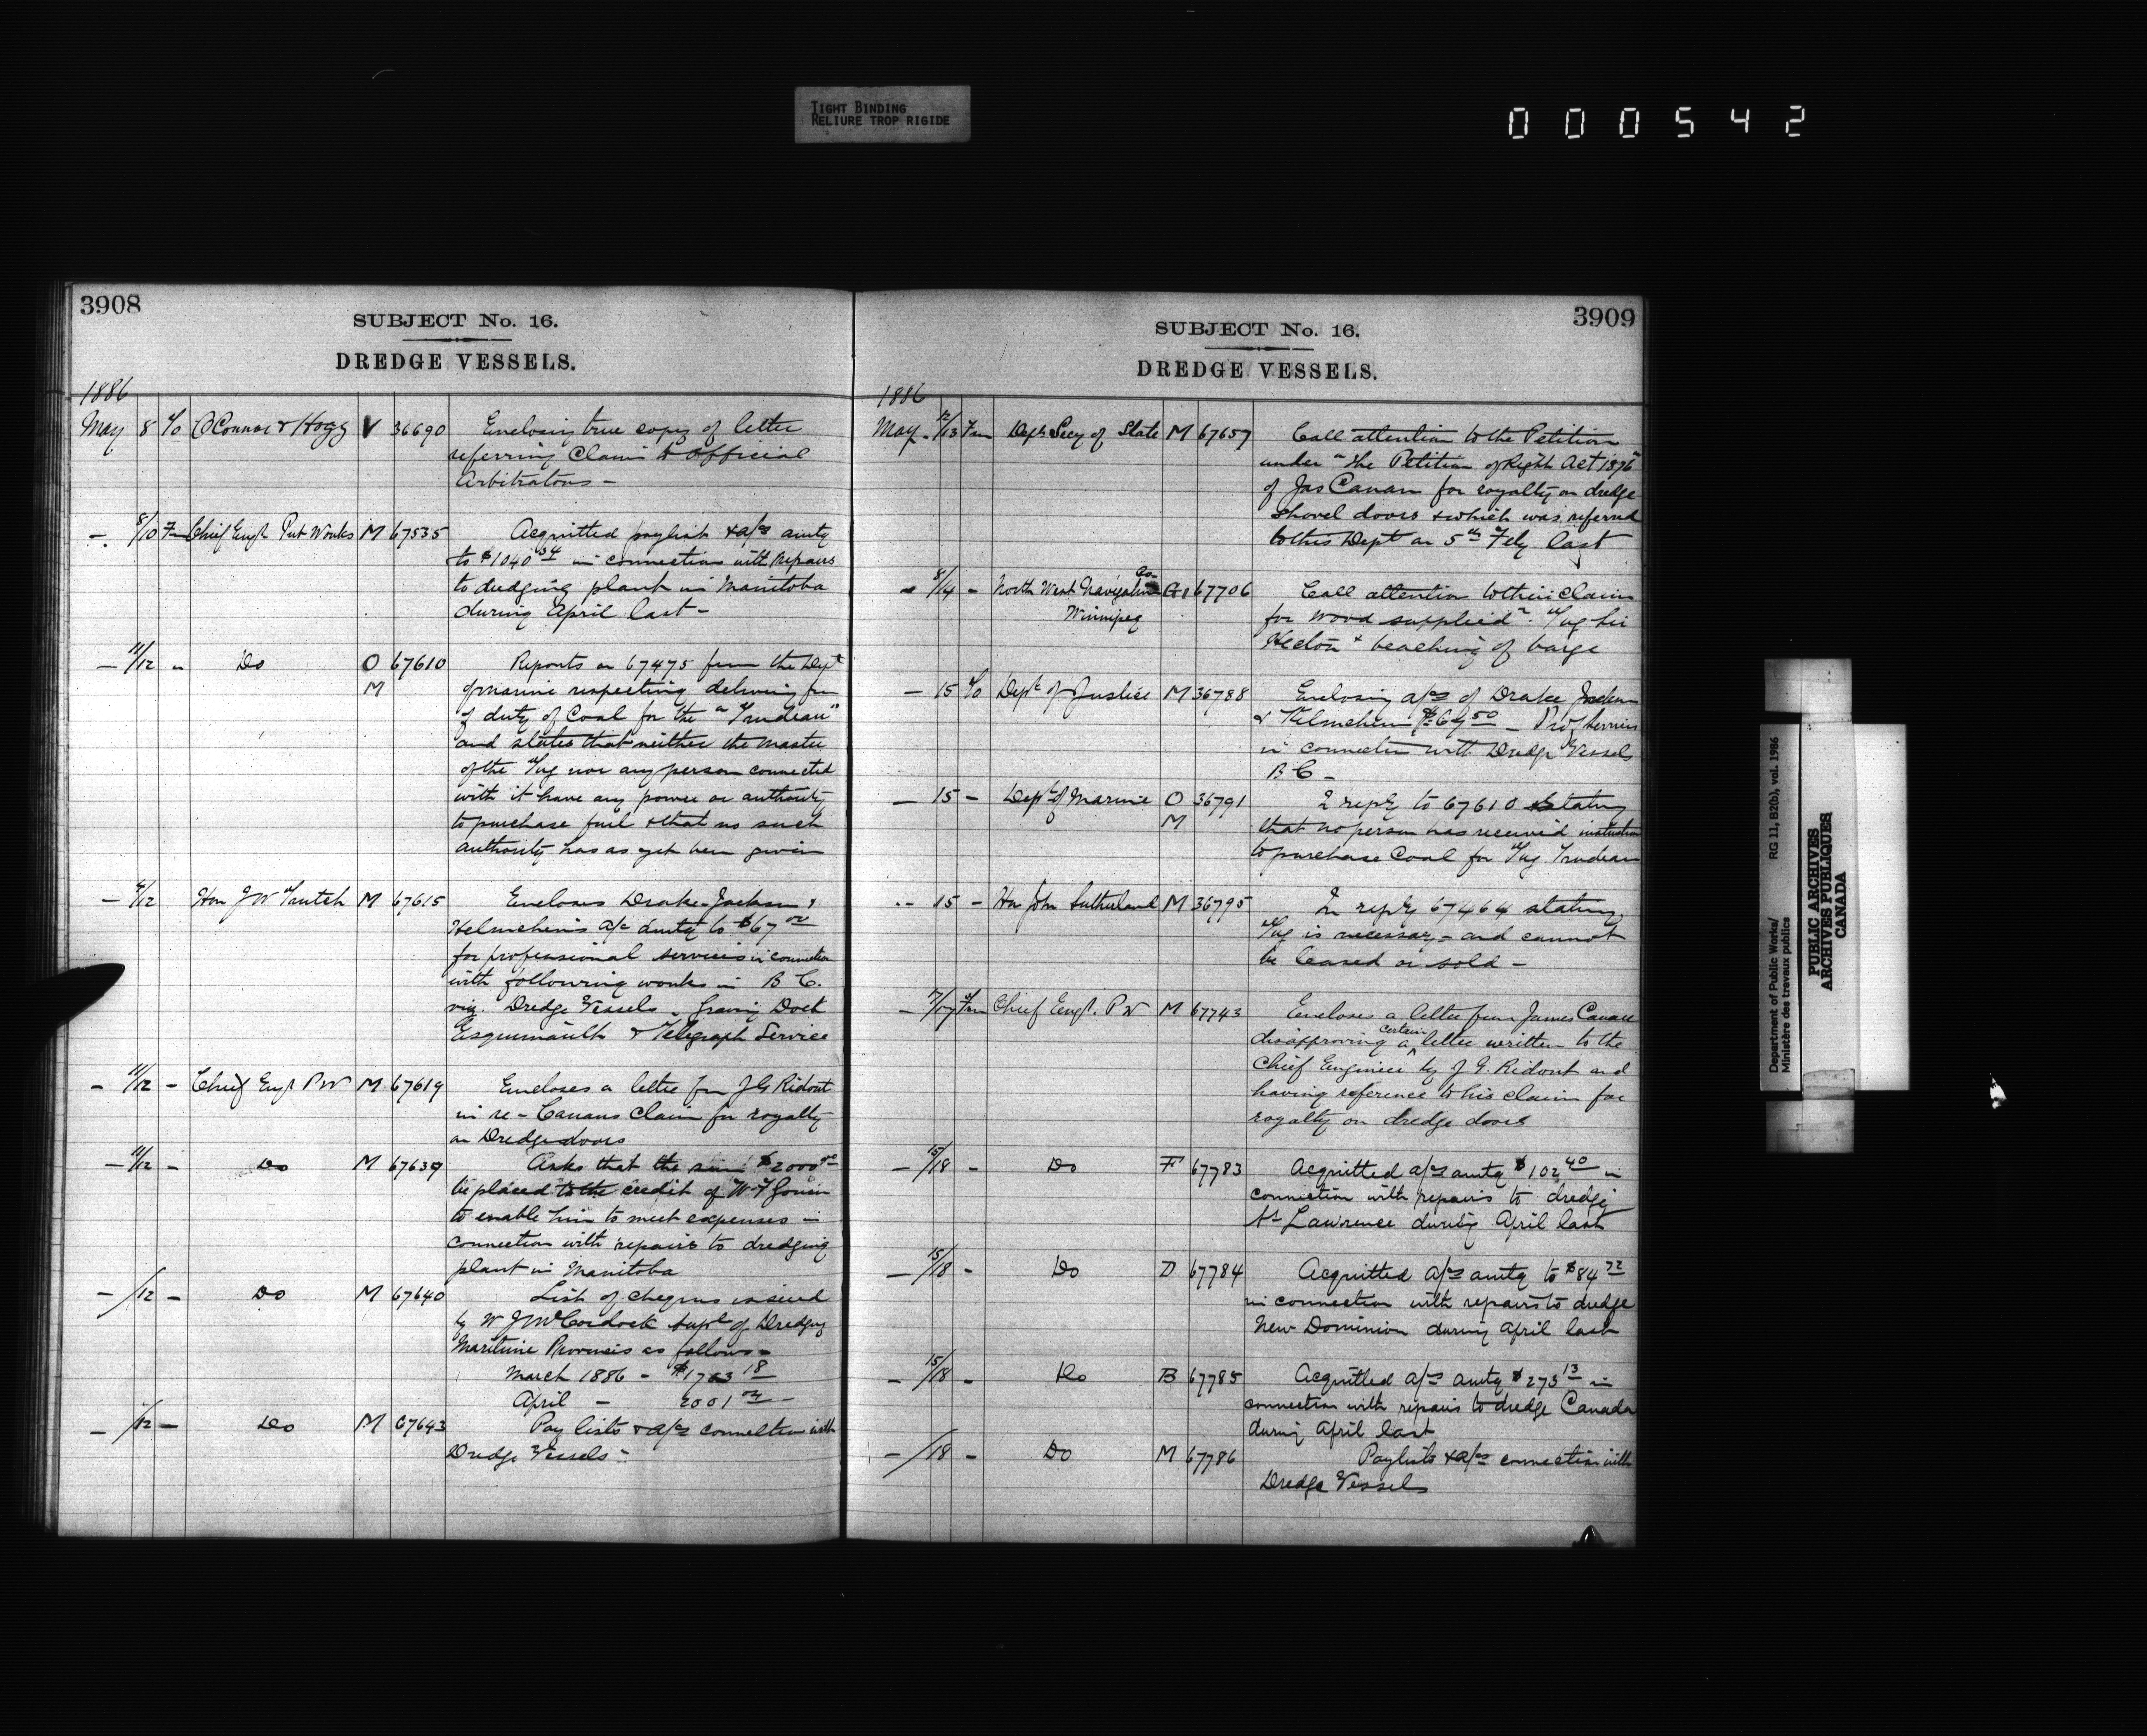 TIGHT BINDING
RELIURE TROP RIGIDE
000542
3908
SUBJECT No. 16.
DREDGE VESSELS.
1886
May 8 T/o OConnor & Hogg V 36690 Enclosing true copy of letter
referring Claim to Official
Arbitrators -
- 8/10 Fm Chief Engr Pub Works M 67535 Acquitted paylist & a/cs amtg
to $1040 54 in connection with Repairs
to dredging plant in Manitoba
during April last -
- 11/12 " Do O 67610 Reports on 67475 from the Dept
M of Marine respecting delivering free
of duty of Coal for the "Trudeau"
and states that neither the Master
of the Tug nor any person connected
with it have any power or authority
to purchase fuel & that no such
authority has as yet been given
- 4/12 Hon J W Trutch M 67615 Encloses Drake Jackson &
Helmcken's a/c amtg to $67 00
for professional services in connection
with following works in B C.
viz. Dredge Vessels - Graving Dock
Esquimault & Telegraph Service
- 11/12 - Chief Engr P W M 67619 Encloses a letter from J G Ridout
in re - Canans Claim for royalty
on Dredge doors
- 11/12 - Do M 67639 Asks that the sum $2000 00
be placed to the credit of W F Gouin
to enable him to meet expenses in
connection with repairs to dredging
plant in Manitoba
- /12 - Do M 67640 List of cheques issued
by W J McCordock Supt of Dredging
Maritime Provinces as follows -
March 1886 - $1763 18
April - 2001
- /12 - Do M 67643 Pay lists & a/cs connection with
Dredge Vessels -
3909
SUBJECT No. 16.
DREDGE VESSELS.
1886
May 12/13 Fm Dept Secy of State M 67657 Call attention to the Petition
under "The Petition of Right Act 1876"
of Jas Canan for royalty on dredge
Shovel doors & which was referred
to this Dept on 5th Feby last
- 8/14 - North West Navigation Co- G 67706 Call attention to their Claim
Winnipeg for wood supplied Tug Sir
Hector & beaching of barge
- 15 T/o Dept of Justice M 36788 Enclosing a/cs of Drake Jackson
& Helmcken $64 50 - Prof services
in connection with Dredge Vessels
B C -
- 15 - Dept of Marine O 36791 In reply to 67610 Stating
M that no person has received instruction
to purchase Coal for Tug Trudeau
- 15 - Hon John Sutherland M 36795 In reply 67464 stating
Tug is necessary - and cannot
be leased or sold -
- 7/17 Fm Chief Engr. P W M 67743 Encloses a letter from James Canan
disapproving a certain letter written to the
Chief Engineer by J G. Ridout and
having reference to his claim for
royalty on dredge doors
- 15/18 - Do F 67783 Acquitted a/cs amtg $102 40 in
connection with repairs to dredge
St Lawrence during April last
- 15/18 - Do D 67784 Acquitted a/cs amtg to $84 72
in connection with repairs to dredge
New Dominion during April last
- 15/18 - Do B 67785 Acquitted a/cs amtg $273 13 in
connection with repairs to dredge Canada
during April last
- /18 - Do M 67786 Paylists & a/cs connection with
Dredge Vessels
Department of Public Works/
Ministère des travaux publics
RG 11, B2(b), vol. 1986
PUBLIC ARCHIVES
ARCHIVES PUBLIQUES
CANADA